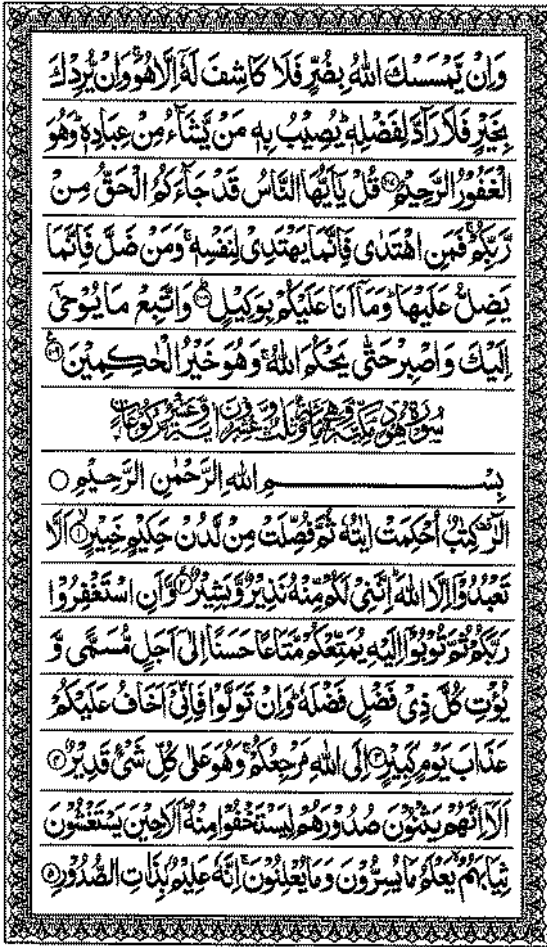 وَاِنْ يَّمْسَسْكَ اللّٰهُ بِضُرٍّ فَلَا كَاشِفَ لَهٗۤ اِلَّا هُوَ ۚ وَاِنْ يُّرِدْكَ
بِخَيْرٍ فَلَا رَآدَّ لِفَضْلِهٖ ؕ يُصِيْبُ بِهٖ مَنْ يَّشَآءُ مِنْ عِبَادِهٖ ؕ وَهُوَ
الْغَفُوْرُ الرَّحِيْمُ ﴿۱۰۷﴾ قُلْ يٰۤاَيُّهَا النَّاسُ قَدْ جَآءَكُمُ الْحَقُّ مِنْ
رَّبِّكُمْ ۚ فَمَنِ اهْتَدٰى فَاِنَّمَا يَهْتَدِىْ لِنَفْسِهٖ ۚ وَمَنْ ضَلَّ فَاِنَّمَا
يَضِلُّ عَلَيْهَا ؕ وَمَاۤ اَنَا عَلَيْكُمْ بِوَكِيْلٍ ﴿۱۰۸﴾ وَاتَّبِعْ مَا يُوْحٰۤى
اِلَيْكَ وَاصْبِرْ حَتّٰى يَحْكُمَ اللّٰهُ ۚ وَهُوَ خَيْرُ الْحٰكِمِيْنَ ﴿۱۰۹﴾
سُوْرَةُ هُوْدٍ مَّكِّيَّةٌ وَّهِىَ مِائَةٌ وَّثَلٰثٌ وَّعِشْرُوْنَ اٰيَةً وَّعَشْرُ رُكُوْعَاتٍ
بِسْمِ اللّٰهِ الرَّحْمٰنِ الرَّحِيْمِ ○
الٓرٰ ۚ كِتٰبٌ اُحْكِمَتْ اٰيٰتُهٗ ثُمَّ فُصِّلَتْ مِنْ لَّدُنْ حَكِيْمٍ خَبِيْرٍ ﴿۱﴾ اَلَّا
تَعْبُدُوْۤا اِلَّا اللّٰهَ ؕ اِنَّنِىْ لَكُمْ مِّنْهُ نَذِيْرٌ وَّبَشِيْرٌ ﴿۲﴾ وَّاَنِ اسْتَغْفِرُوْا
رَبَّكُمْ ثُمَّ تُوْبُوْۤا اِلَيْهِ يُمَتِّعْكُمْ مَّتَاعًا حَسَنًا اِلٰۤى اَجَلٍ مُّسَمًّى وَّ
يُؤْتِ كُلَّ ذِىْ فَضْلٍ فَضْلَهٗ ؕ وَاِنْ تَوَلَّوْا فَاِنِّىْۤ اَخَافُ عَلَيْكُمْ
عَذَابَ يَوْمٍ كَبِيْرٍ ﴿۳﴾ اِلَى اللّٰهِ مَرْجِعُكُمْ ۚ وَهُوَ عَلٰى كُلِّ شَىْءٍ قَدِيْرٌ ﴿۴﴾
اَلَاۤ اِنَّهُمْ يَثْنُوْنَ صُدُوْرَهُمْ لِيَسْتَخْفُوْا مِنْهُ ؕ اَلَا حِيْنَ يَسْتَغْشُوْنَ
ثِيَابَهُمْ ۙ يَعْلَمُ مَا يُسِرُّوْنَ وَمَا يُعْلِنُوْنَ ۚ اِنَّهٗ عَلِيْمٌۢ بِذَاتِ الصُّدُوْرِ ﴿۵﴾